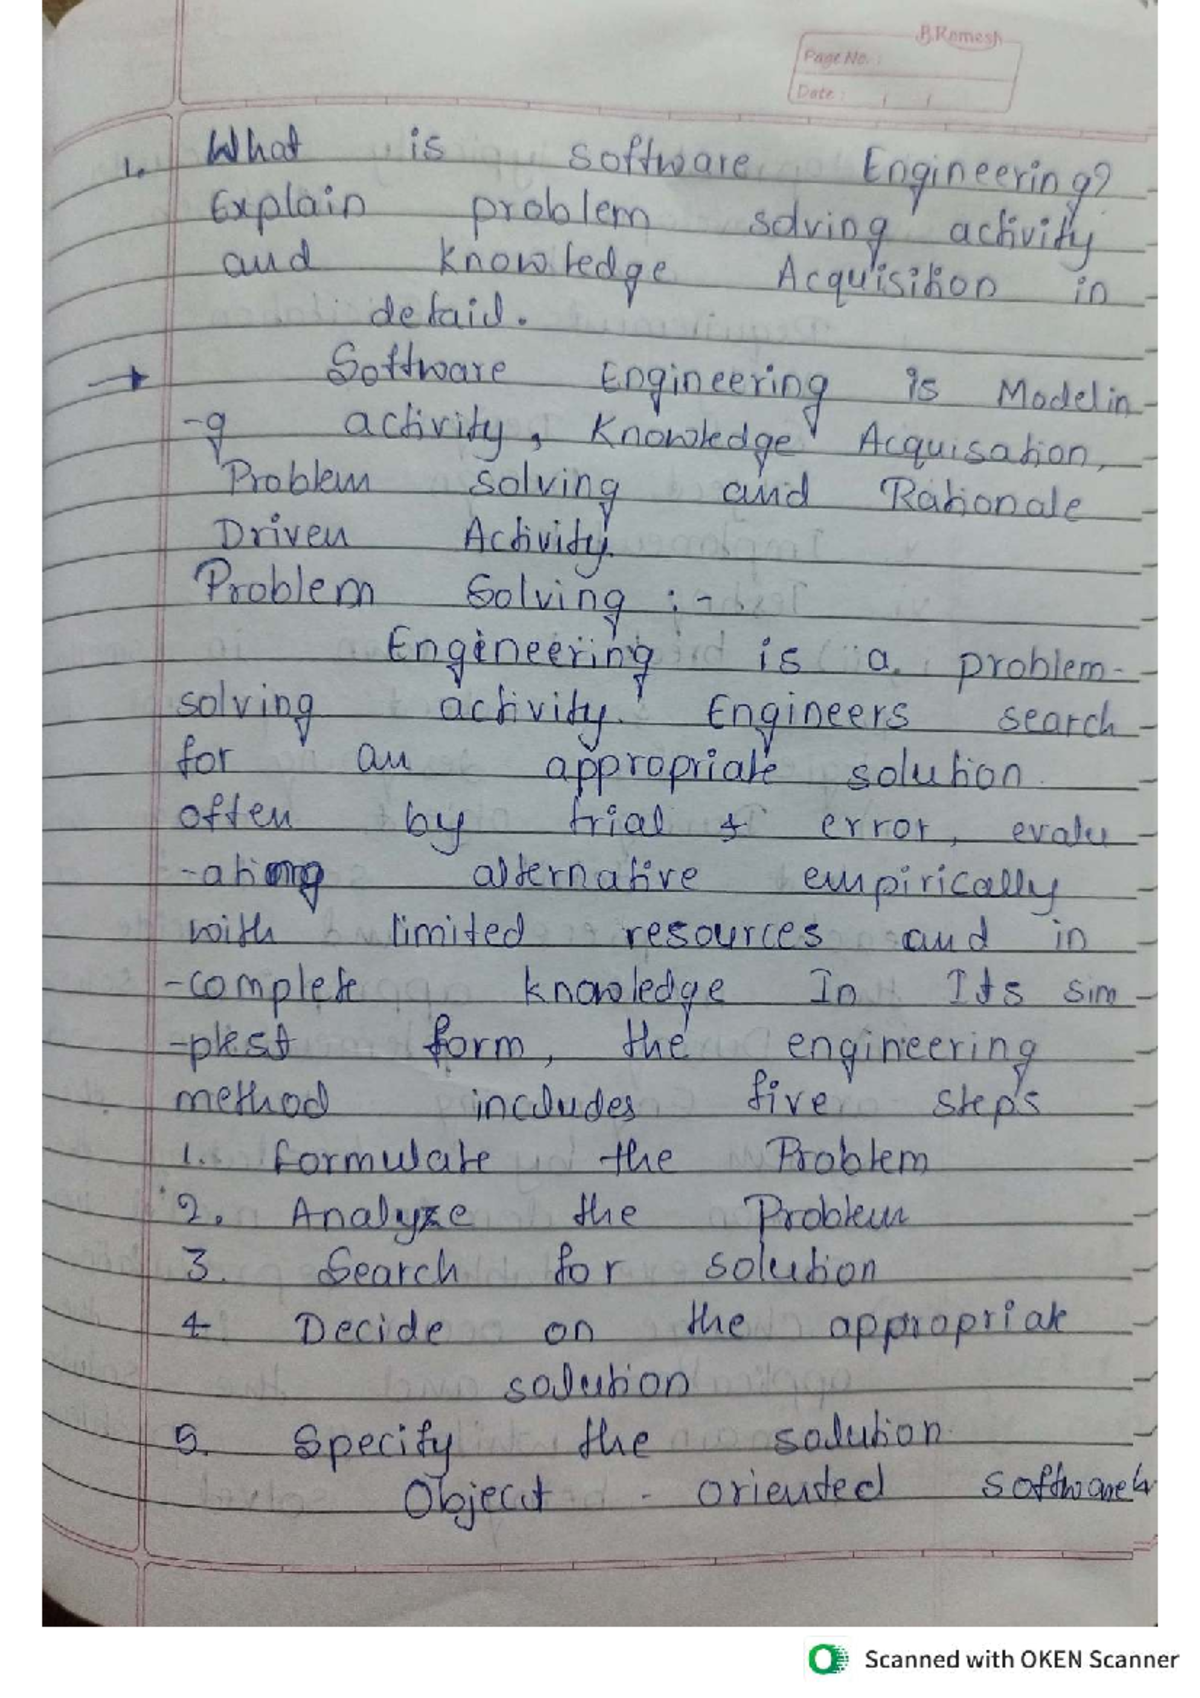 B.Ramesh
Page No. :
Date : / /
1. What is software Engineering?
Explain problem solving activity
and knowledge Acquisition in
detail.
→ Software Engineering is Modelin
-g activity, Knowledge Acquisation,
Problem solving and Rationale
Driven Activity.
Problem Solving :-
Engineering is a problem-
solving activity. Engineers search
for an appropriate solution
often by trial & error, evalu
-ating alternative empirically
with limited resources and in
-complete knowledge In Its sim
-plest form, the engineering
method includes five steps
1. Formulate the Problem
2. Analyze the Problem
3. Search for solution
4 Decide on the appropriate
solution
5. Specify the solution
Object - oriented software
Scanned with OKEN Scanner